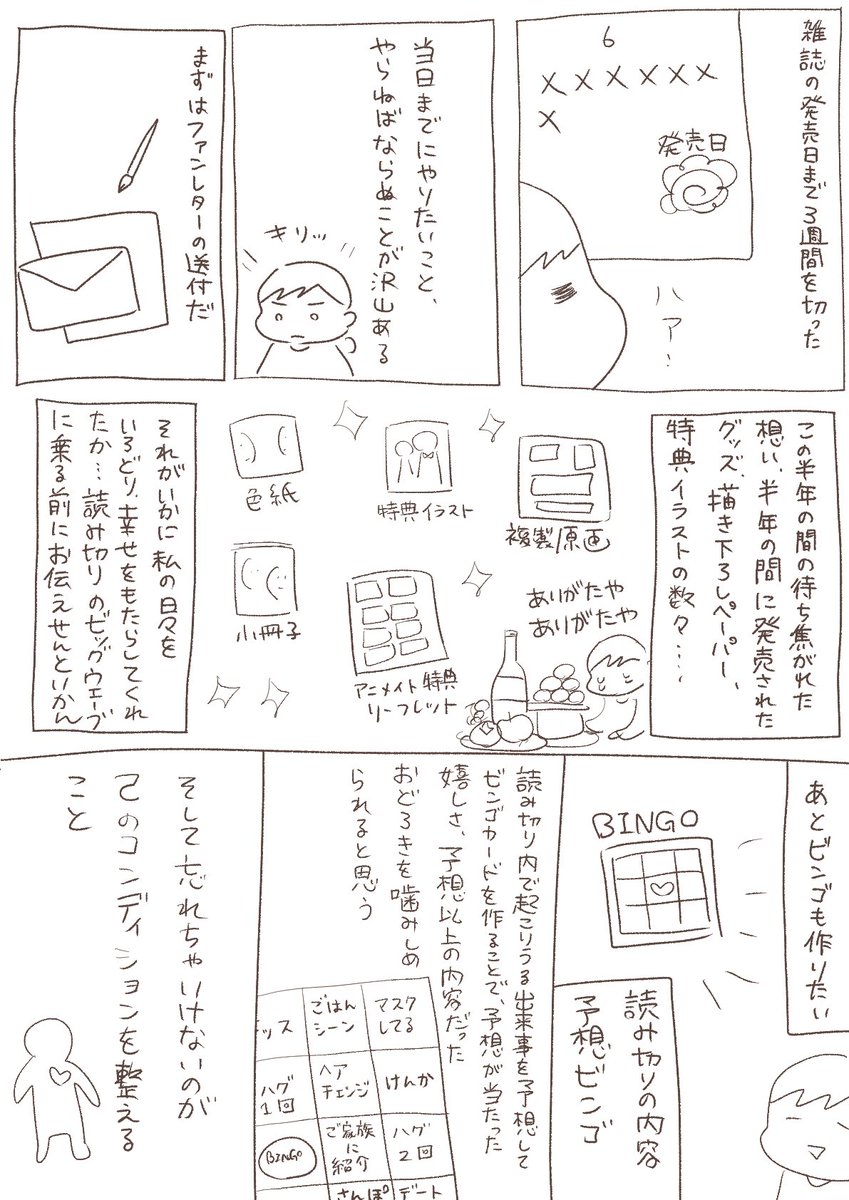 雑誌の発売日まで3週間を切った
6
××××××
×
発売日
ハァ…
当日までにやりたいこと、
やらねばならぬことが沢山ある
キリッ
まずはファンレターの送付だ
この半年の間の待ち焦がれた
想い、半年の間に発売された
グッズ、描き下ろしペーパー、
特典イラストの数々…
複製原画
特典イラスト
色紙
ありがたや
ありがたや
アニメイト特典
リーフレット
小冊子
それがいかに私の日々を
いろどり、幸せをもたらしてくれ
たか…読み切りのビッグウェーブ
に乗る前にお伝えせんといかん
あとビンゴも作りたい
BINGO
読み切りの内容
予想ビンゴ
読み切り内で起こりうる出来事を予想して
ビンゴカードを作ることで、予想が当たった
嬉しさ、予想以上の内容だった
おどろきを噛みしめ
られると思う
ごはん
シーン
マスク
してる
ハグ
1回
ヘア
チェンジ
けんか
BINGO
ご家族
に
紹介
ハグ
2回
さんぽ
デート
そして忘れちゃいけないのが
己のコンディションを整える
こと